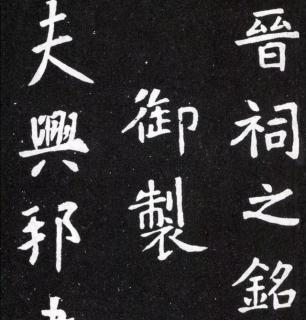 晉祠之銘
御製
夫興邦